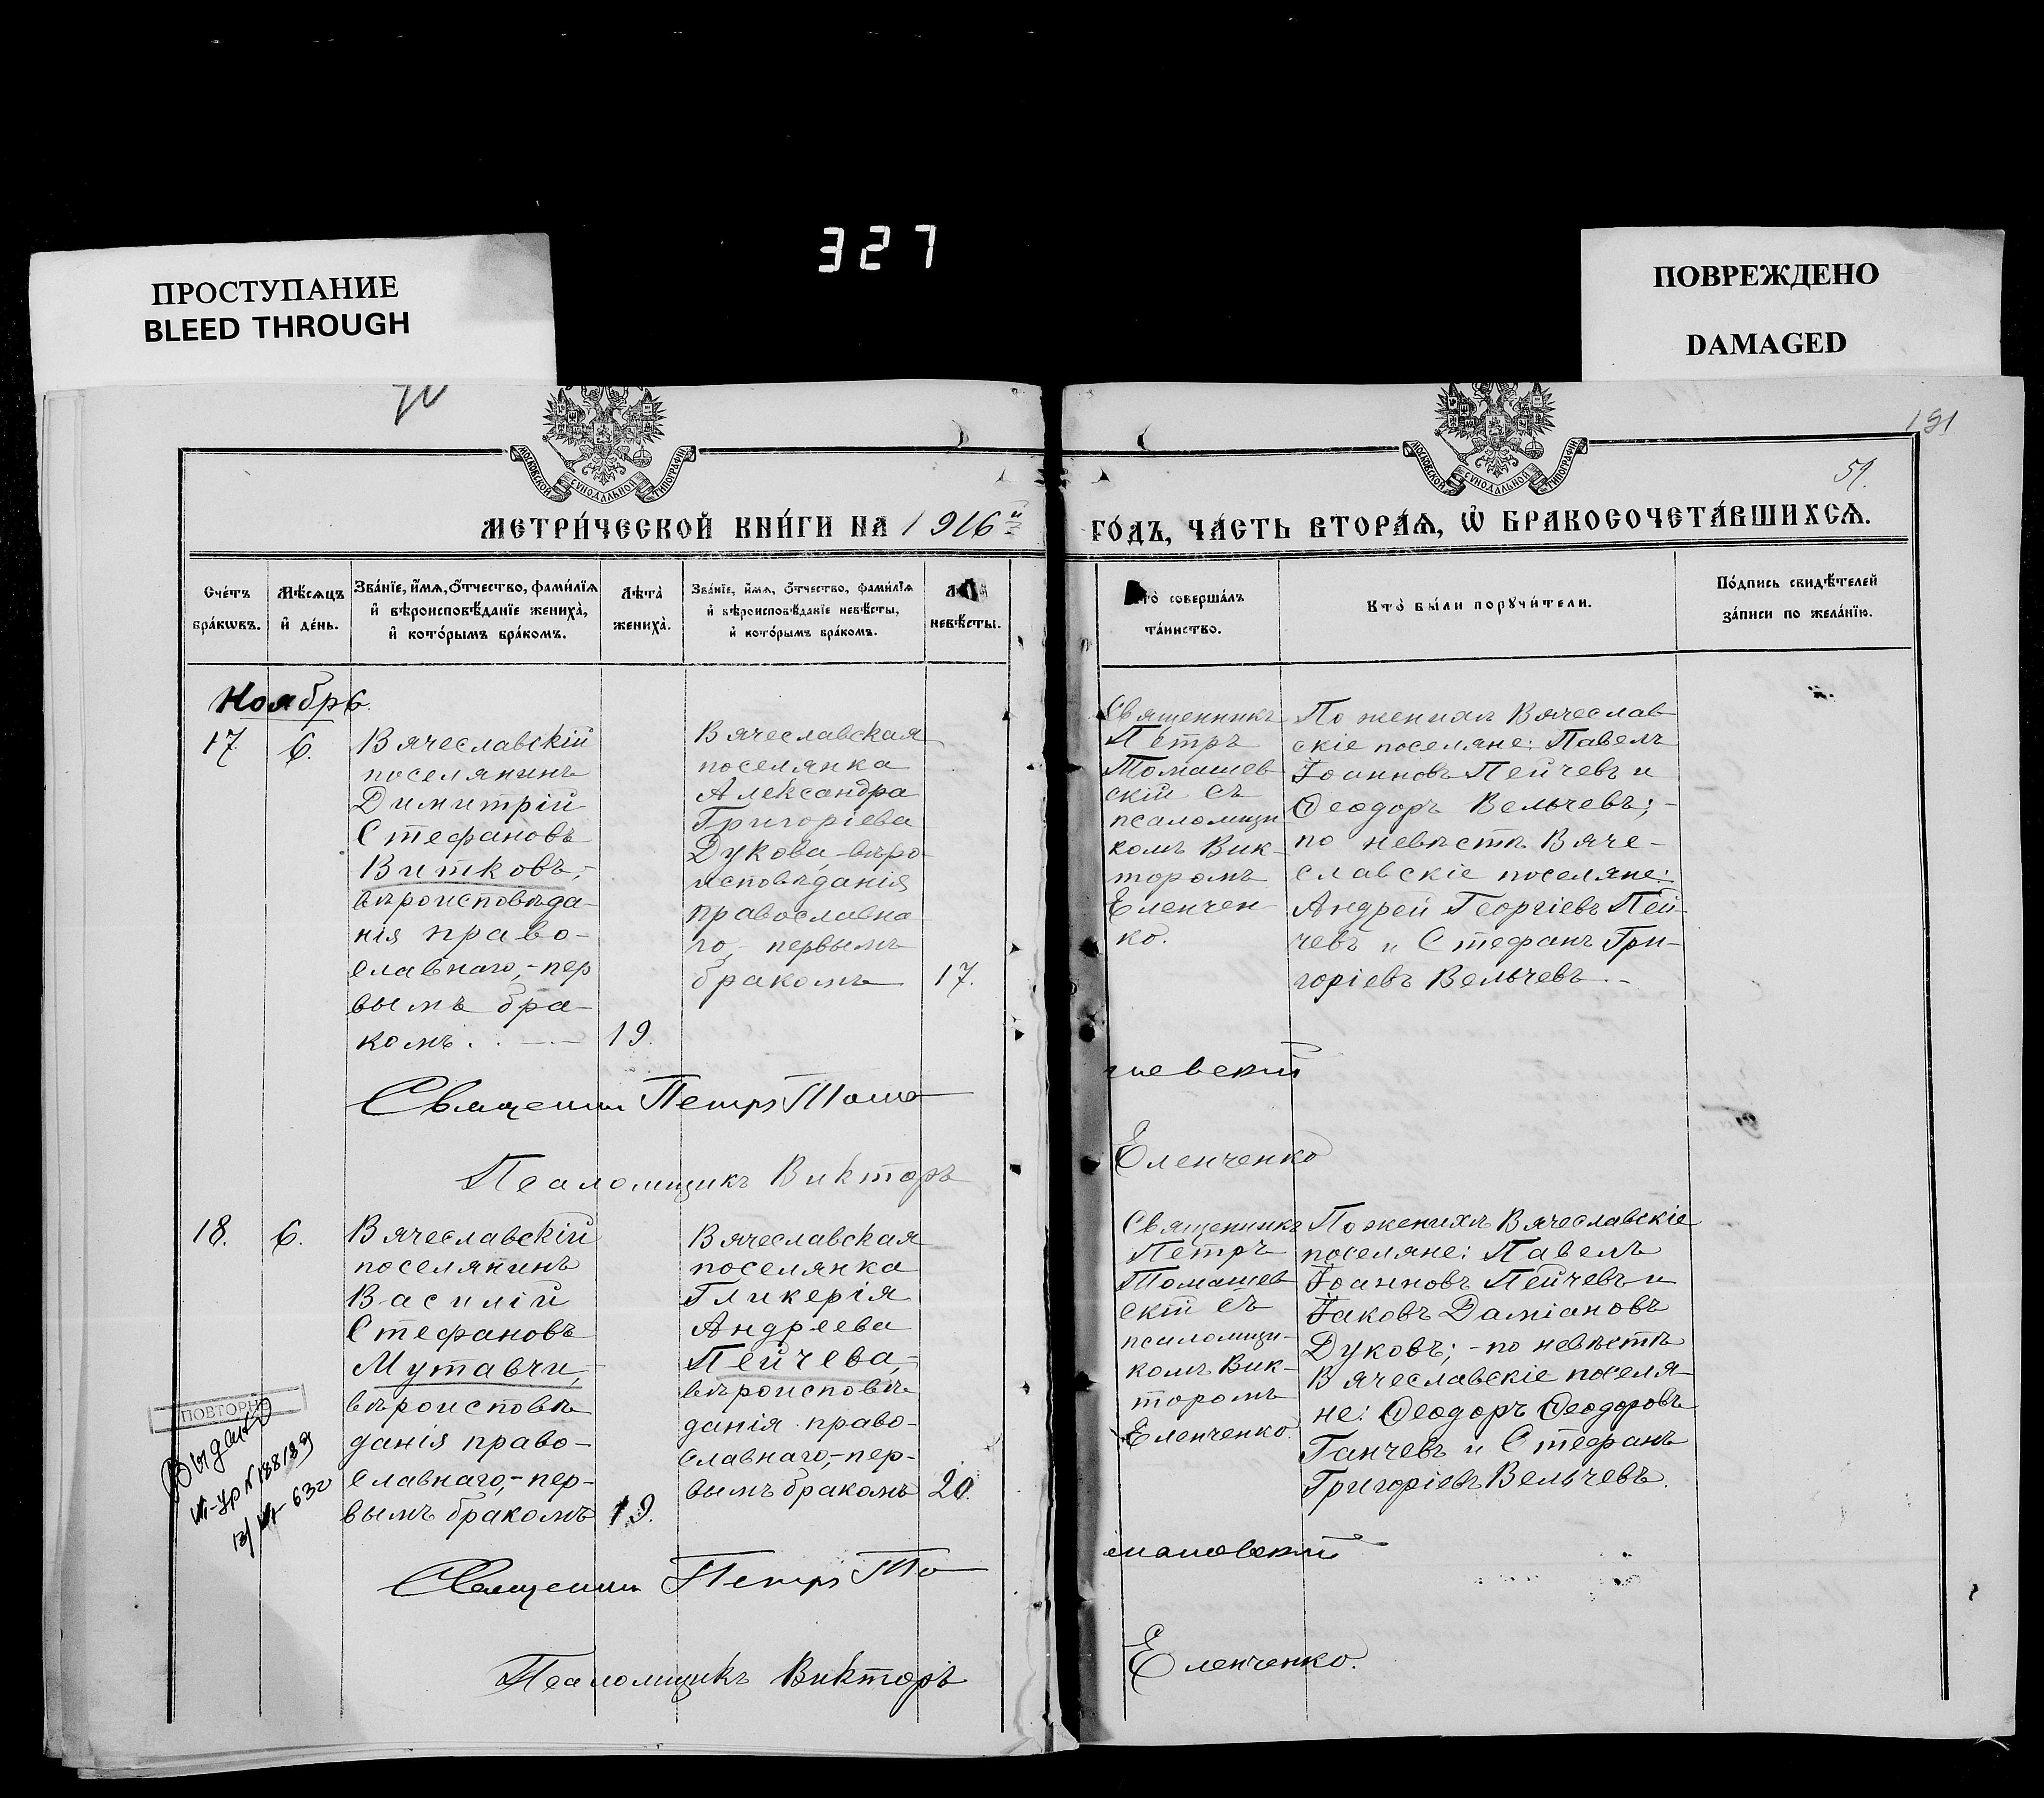 327
ПРОСТУПАНИЕ
BLEED THROUGH
ПОВРЕЖДЕНО
DAMAGED
191
59.
МОСКОВСКОЙ СѴНОДАЛЬНОЙ ТИПОГРАФІИ
МОСКОВСКОЙ СѴНОДАЛЬНОЙ ТИПОГРАФІИ
МЕТРИ́ЧЕСКОЙ КНИ́ГИ НА 1916й
ГО́ДЪ, ЧА́СТЬ ВТОРА́Ѧ, Ѽ БРАКОСОЧЕТА́ВШИХСѦ.
Сче́тъ
бра́кѡвъ.
Мѣ́сѧцъ
и҆ де́нь.
Зва́нїе, и҆́мѧ, ѻ҆́тчество, фами́лїѧ
и҆ вѣроисповѣ́данїе жениха̀,
и҆ кото́рымъ бра́комъ.
Лѣта̀
жениха̀.
Зва́нїе, и҆́мѧ, ѻ҆́тчество, фами́лїѧ
и҆ вѣроисповѣ́данїе невѣ́сты,
и҆ кото́рымъ бра́комъ.
невѣ́сты.
соверша́лъ
та́инство.
Кто̀ бы́ли порꙋчи́тели.
По́дпись свидѣ́телей
за́писи по жела́нїю.
Ноябрь.
17.
6.
Вячеславскій
поселянинъ
Димитрій
Стефановъ
Витковъ,-
вѣроисповѣда-
нія право-
славнаго,-пер
вымъ бра-
комъ.
19.
Вячеславская
поселянка
Александра
Григоріева
Дукова-вѣро-
исповѣданія
православна-
го, первымъ
бракомъ
17.
Священникъ
Петръ
Томашев
скій съ
псаломщи
комъ Вик-
торомъ
Еленчен-
ко.
По женихѣ Вячеслав-
скіе поселяне: Павелъ
Іоанновъ Пейчевъ и
Ѳеодоръ Вельчевъ;-
по невѣстѣ Вяче-
славскіе поселяне:
Андрей Георгіевъ Пей-
чевъ и Стефанъ Гри-
горіевъ Вельчевъ.-
Священникъ Петръ Тома
шевскій
Псаломщикъ Викторъ
Еленченко
18.
6.
Вячеславскій
поселянинъ
Василій
Стефановъ
Мутавчи,-
вѣроисповѣ
данія право-
славнаго,-пер-
вымъ бракомъ
19.
Вячеславская
поселянка
Гликерія
Андреева
Пейчева,-
вѣроисповѣ
данія право-
славнаго,-пер-
вымъ бракомъ
20.
Священникъ
Петръ
Томашев
скій съ
псаломщи-
комъ Вик-
торомъ
Еленченко.
По женихѣ Вячеславскіе
поселяне: Павелъ
Іоанновъ Пейчевъ и
Іаковъ Даміановъ
Дуковъ;-по невѣстѣ
Вячеславскіе поселя-
не: Ѳеодоръ Ѳеодоровъ
Ганчевъ и Стефанъ
Григоріевъ Вельчевъ.
ПОВТОРНО
Священникъ Петръ То
машевскій
Псаломщикъ Викторъ
Еленченко.